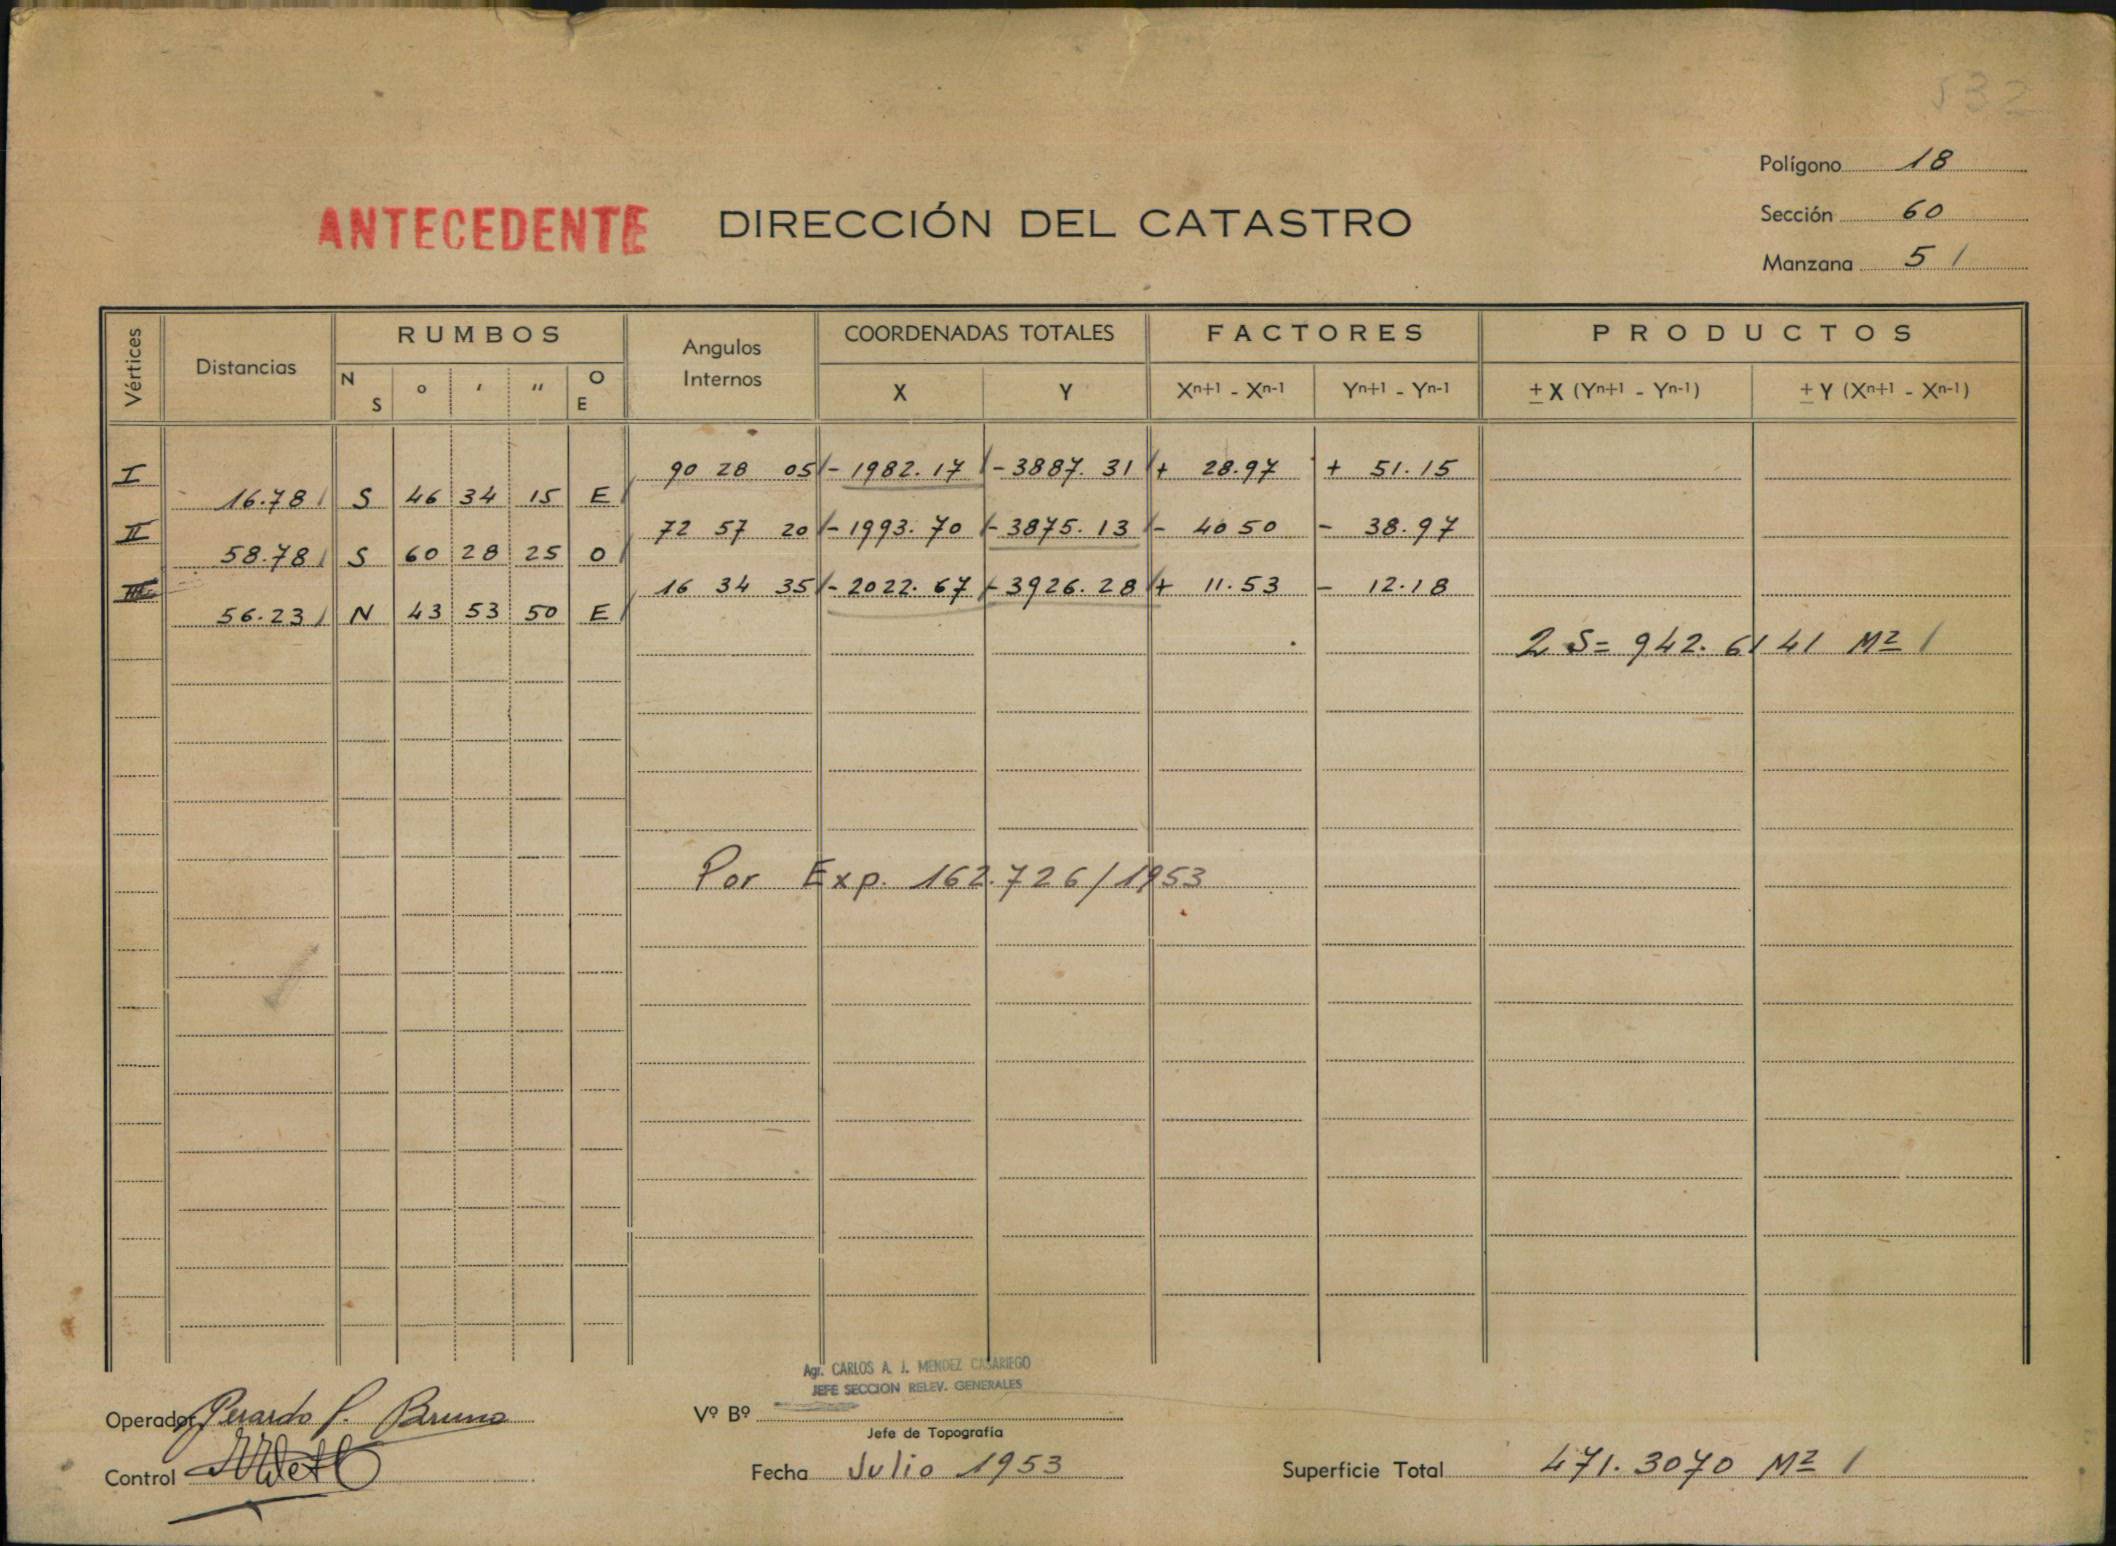 532
Polígono 18
ANTECEDENTE DIRECCIÓN DEL CATASTRO
Sección 60
Manzana 51
Vértices Distancias RUMBOS Angulos Internos COORDENADAS TOTALES FACTORES PRODUCTOS
N S ° ′ ″ O E X Y Xn+1 - Xn-1 Yn+1 - Yn-1 ± X (Yn+1 - Yn-1) ± Y (Xn+1 - Xn-1)
I 90 28 05 - 1982.17 - 3887.31 + 28.97 + 51.15
16.78 S 46 34 15 E
II 72 57 20 - 1993.70 - 3875.13 - 40 50 - 38.97
58.78 S 60 28 25 O
III 16 34 35 - 2022.67 - 3926.28 + 11.53 - 12.18
56.23 N 43 53 50 E
2 S = 942.6141 M2
Por Exp. 162.726/1953
Agr. CARLOS A. J. MENDEZ CASARIEGO
JEFE SECCION RELEV. GENERALES
Operador P. Bruno
Vº Bº
Jefe de Topografía
Control
Fecha Julio 1953
Superficie Total 471.3070 M2